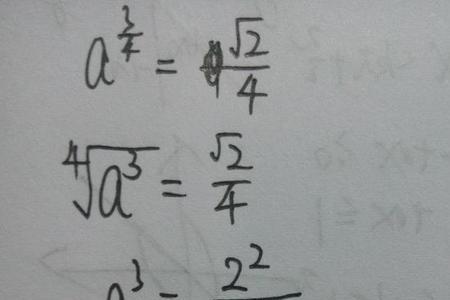 a^{3/4} = √2/4
⁴√(a³) = √2/4
a³ = 2²/